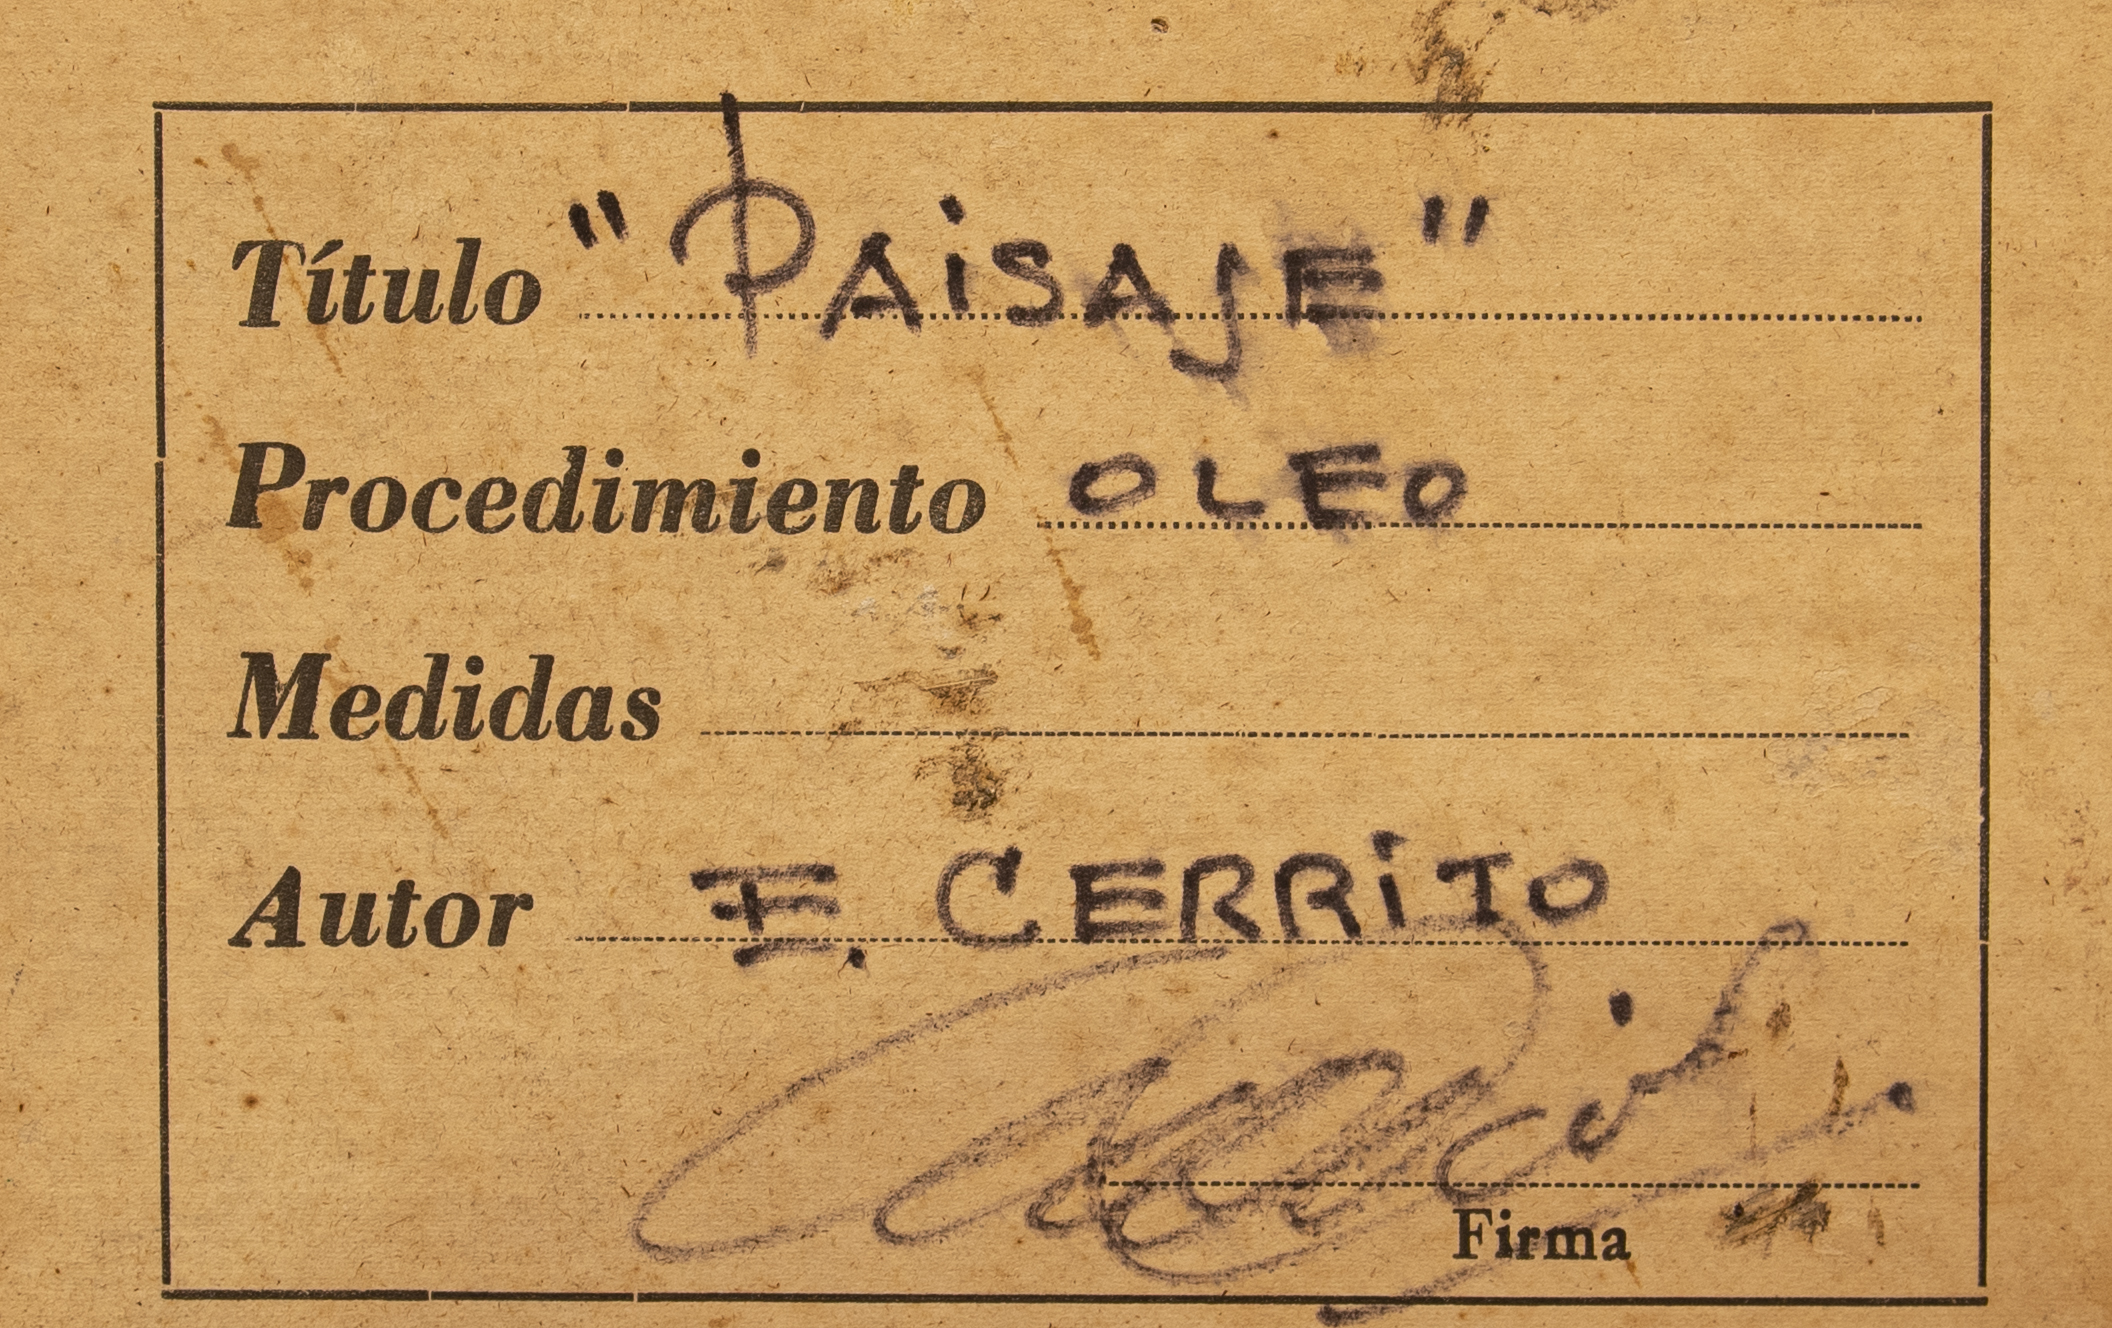 Título "PAiSAJE"
Procedimiento OLEO
Medidas
Autor E. CERRiTO
Firma